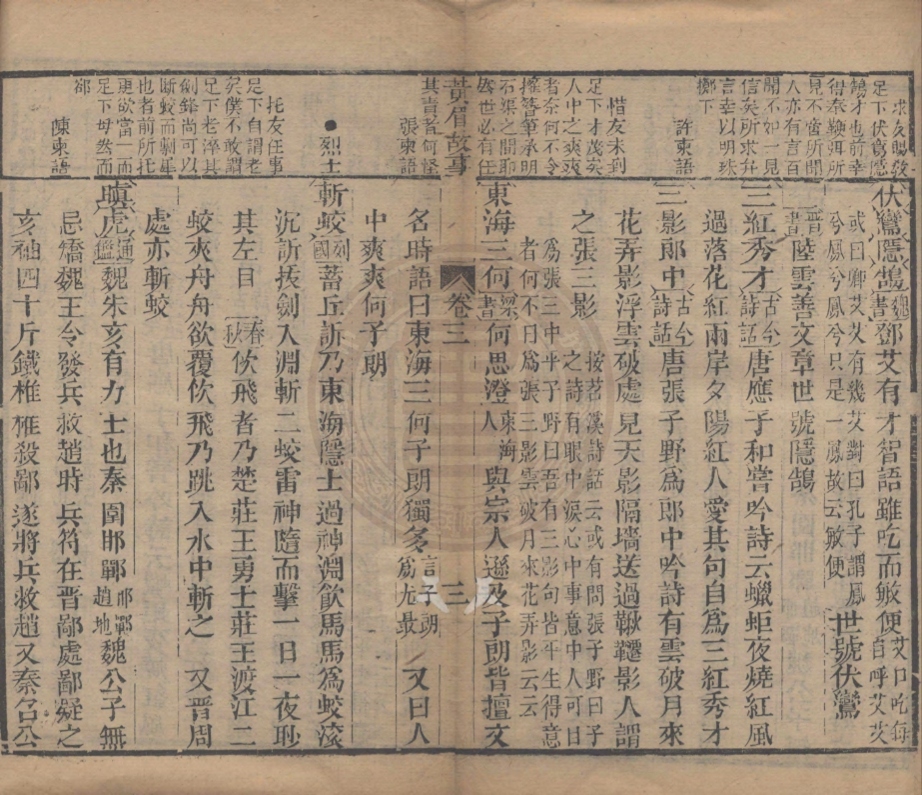 求友賜教
足下伏鸞隱
鵠才也前幸
得奉輭弭所
見不啻所聞
人亦有言百
聞不如一見
信矣所求弁
言幸以明珠
擲下
許柬語
惜友未到
足下才茂矣
人中之爽爽
者奈何不令
擁簪筆承明
石渠之間耶
聖世必有任
其責者何怪
張柬語
烈士
托友任事
足下自謂老
矣僕不敢謂
足下老淬其
劍鋒尚可以
斷蛟而剸犀
也者前所托
更欲當一面
足下毋然而
郤
陳柬語
伏鸞隱鵠 魏書 鄧艾有才智語雖吃而敏便 艾口吃每自呼艾艾
或曰卿艾艾有幾艾對曰孔子謂鳳
兮鳳兮鳳兮只是一鳳故云敏便 世號伏鸞
晉書 陸雲善文章世號隱鵠
三紅秀才 古今詩話 唐應子和嘗吟詩云蠟炬夜燒紅風
過落花紅兩岸夕陽紅人愛其句自爲三紅秀才
三影郎中 古今詩話 唐張子野爲郎中吟詩有雲破月來
花弄影浮雲破處見天影隔墻送過鞦韆影人謂
之張三影 按苕溪詩話云或有問張子野曰子之詩有眼中淚心中事意中人可目
爲張三中乎子野曰吾有三影句皆平生得意
者何不日爲張三影雲破月來花弄影云云
東海三何 梁書 何思澄 東海人 與宗人遜及子朗皆擅文
黃眉故事 卷三 三
名時語曰東海三何子朗獨多 言子朗爲尤最 又曰人
中爽爽何子朗
斬蛟 列國 蓄丘訢乃東海隱士過神淵飲馬馬爲蛟滾
沉訢拔劍入淵斬二蛟雷神隨而擊一日一夜眇
其左目 春秋 佽飛者乃楚莊王勇士莊王渡江二
蛟夾舟舟欲覆佽飛乃跳入水中斬之 又晉周
處亦斬蛟
瞋虎 通鑑 魏朱亥有力士也秦圍邯鄲 邯鄲趙地 魏公子無
忌矯魏王令發兵救趙時兵符在晉鄙處鄙疑之
亥袖四十斤鐵椎椎殺鄙遂將兵救趙又秦召公